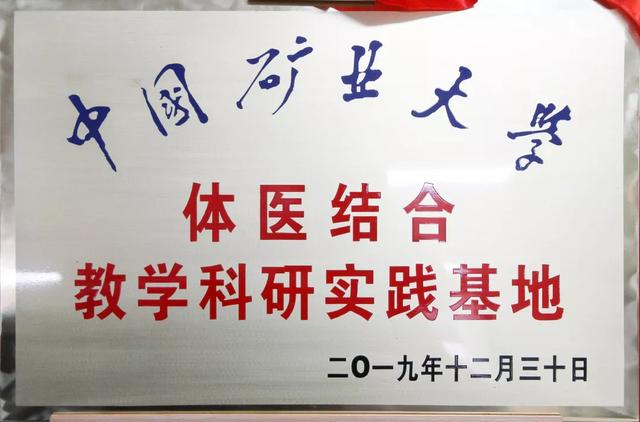 中国矿业大学
体医结合
教学科研实践基地
二〇一九年十二月三十日